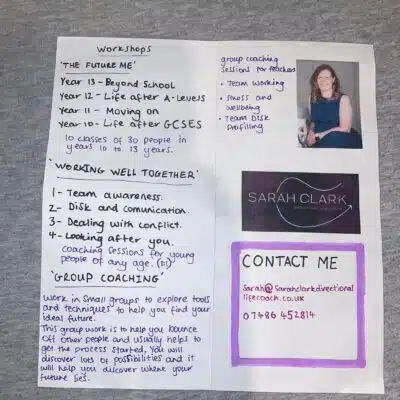 Workshops
'THE FUTURE ME'
Year 13 - Beyond School
Year 12 - Life after A-Levels
Year 11 - Moving on
Year 10 - Life after GCSES
10 classes of 30 people in
years 10 to 13 years.
'WORKING WELL TOGETHER'
1- Team awareness.
2- Disk and comunication.
3- Dealing with conflict.
4- Looking after you.
coaching sessions for young
people of any age. (F1)
'GROUP COACHING'
Work in small groups to explore tools
and techniques to help you find your
ideal future.
This group work is to help you bounce
off other people and usually helps to
get the process started. You will
discover lots of possibilities and it
will help you discover where your
future lies.
group coaching
sessions for teachers
• Team working
• Stress and
wellbeing
• Team Disk
Profiling
SARAH CLARK
CONTACT ME
Sarah@Sarahclarkdirectional
lifecoach.co.uk
07486 452814